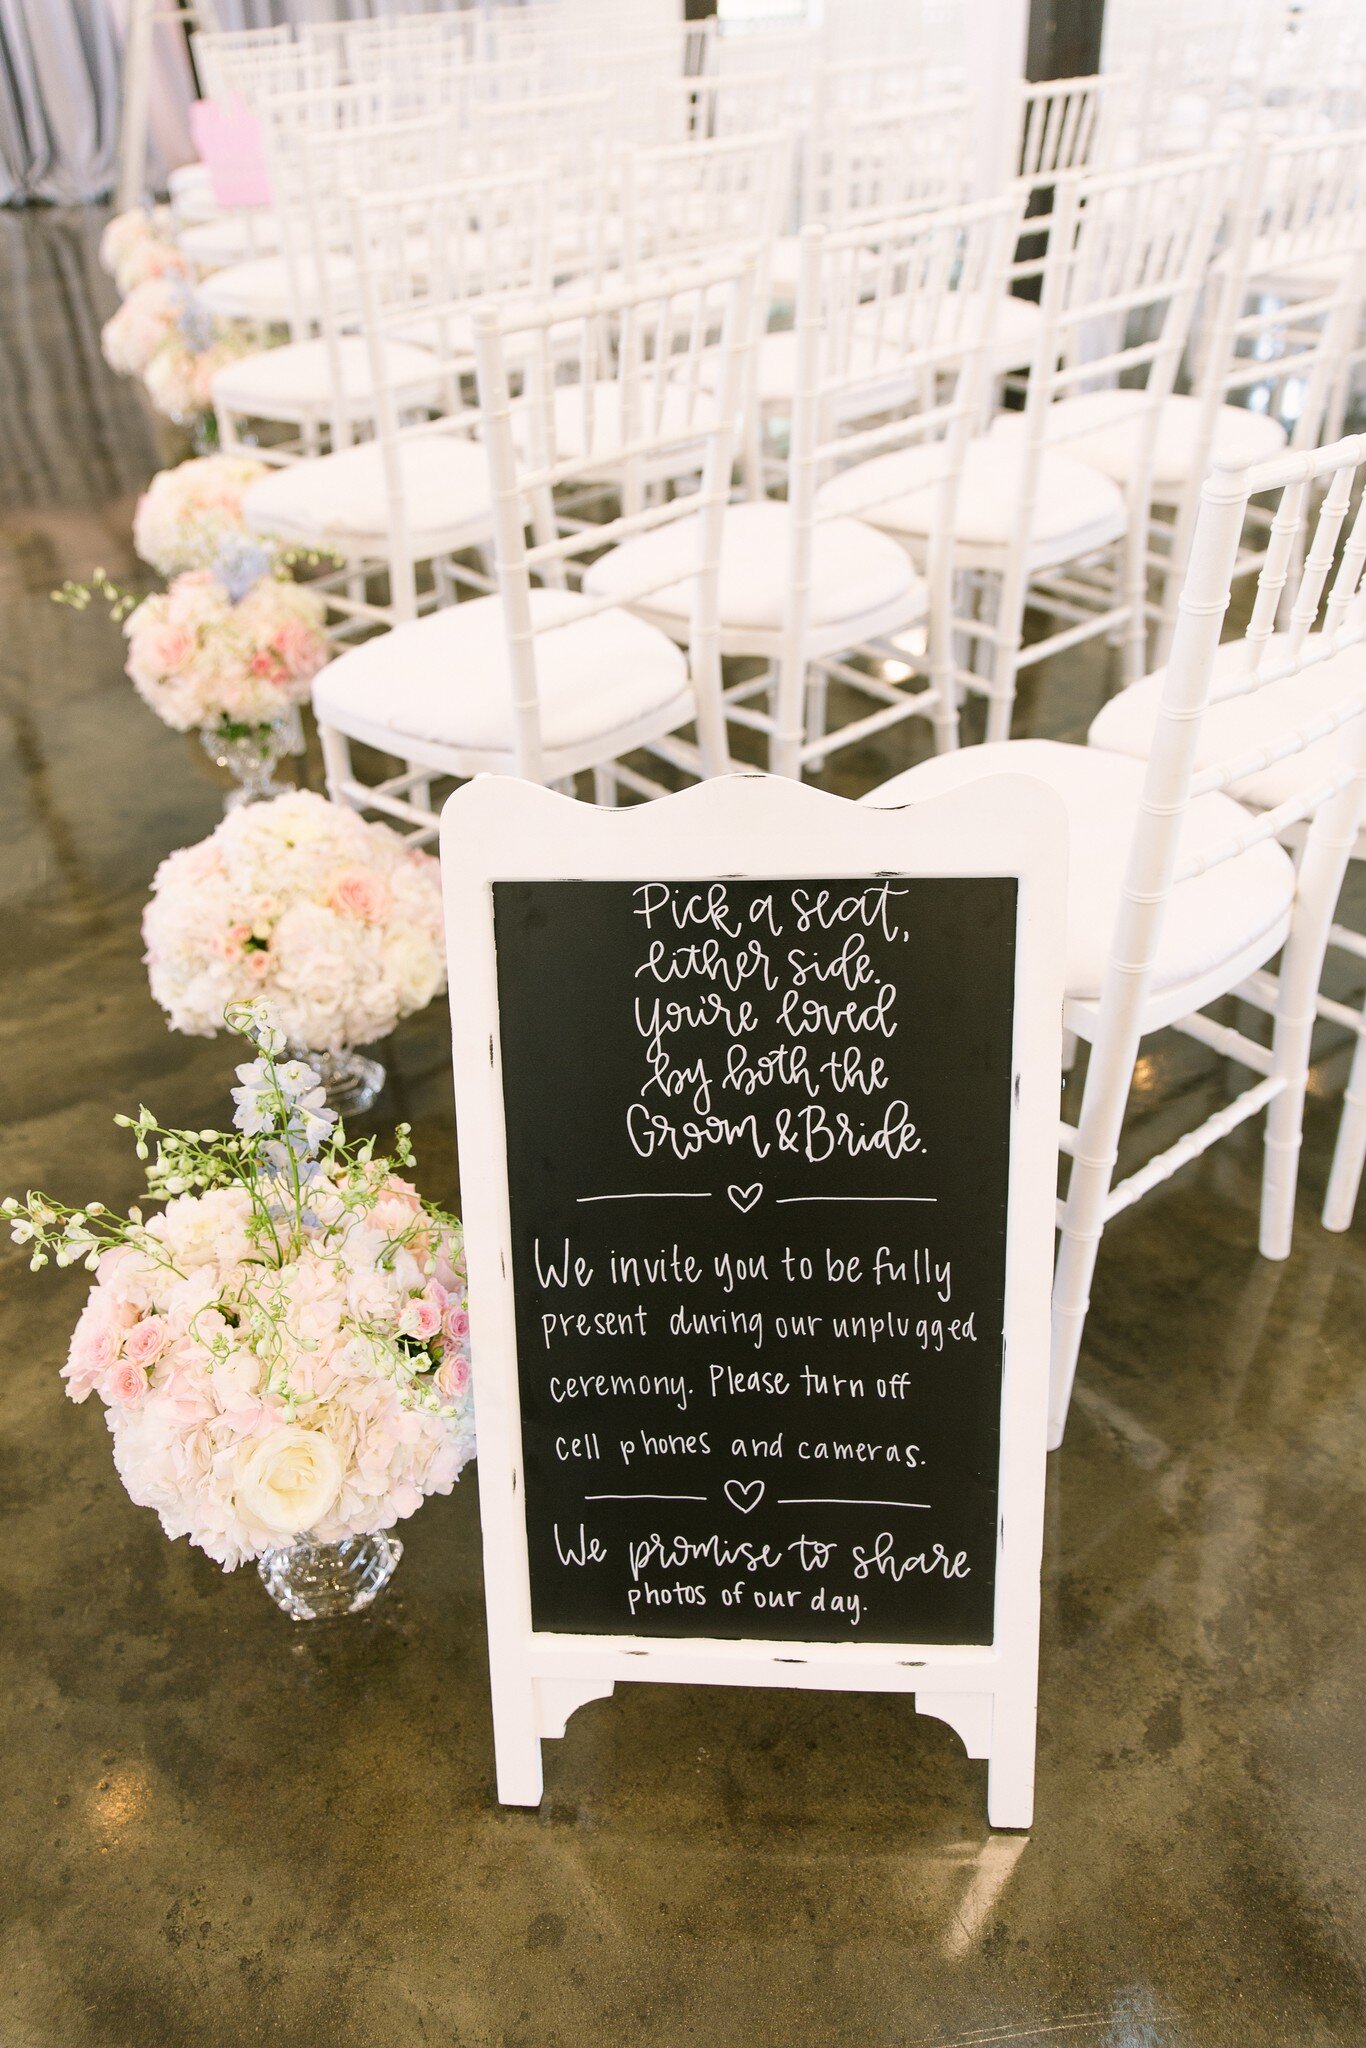 Pick a seat,
either side.
You're loved
by both the
Groom & Bride.
We invite you to be fully
present during our unplugged
ceremony. Please turn off
cell phones and cameras.
We promise to share
photos of our day.